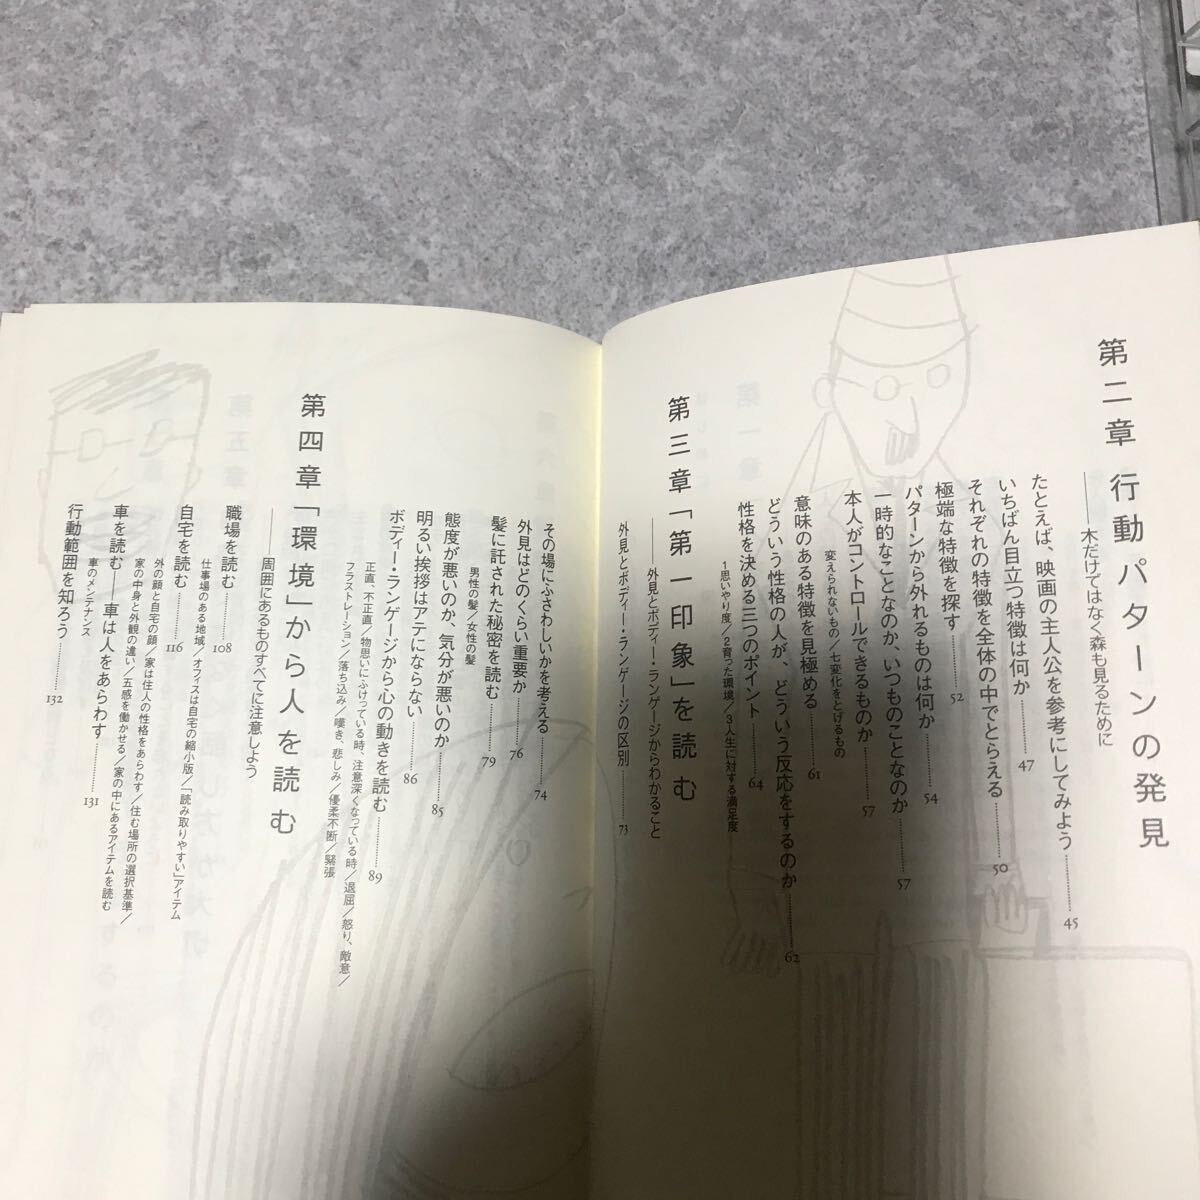 第二章 行動パターンの発見
——木だけではなく森も見るために
たとえば、映画の主人公を参考にしてみよう………45
いちばん目立つ特徴は何か………47
それぞれの特徴を全体の中でとらえる………50
極端な特徴を探す………52
パターンから外れるものは何か………54
一時的なことなのか、いつものことなのか………57
本人がコントロールできるものか………57
変えられないもの／七変化をとげるもの
意味のある特徴を見極める………61
どういう性格の人が、どういう反応をするのか………62
性格を決める三つのポイント………64
1思いやり度／2育った環境／3人生に対する満足度
第三章「第一印象」を読む
——外見とボディー・ランゲージからわかること
外見とボディー・ランゲージの区別………73
その場にふさわしいかを考える………74
外見はどのくらい重要か………76
髪に託された秘密を読む………79
男性の髪／女性の髪
態度が悪いのか、気分が悪いのか………85
明るい挨拶はアテにならない………86
ボディー・ランゲージから心の動きを読む………89
正直、不正直／物思いにふけっている時、注意深くなっている時／退屈／怒り、敵意／
フラストレーション／落ち込み／嘆き、悲しみ／優柔不断／緊張
第四章「環境」から人を読む
——周囲にあるものすべてに注意しよう
職場を読む………108
仕事場のある地域／オフィスは自宅の縮小版／「読み取りやすい」アイテム
自宅を読む………116
外の顔と自宅の顔／家は住人の性格をあらわす／住む場所の選択基準／
家の中身と外観の違い／五感を働かせる／家の中にあるアイテムを読む
車を読む——車は人をあらわす………131
車のメンテナンス
行動範囲を知ろう………132